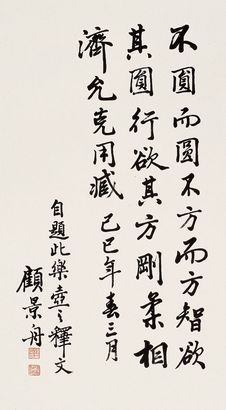 不圓而圓不方而方智欲
其圓行欲其方剛柔相
濟允克用臧 己巳年春三月
自題此樂壺之釋文
顧景舟